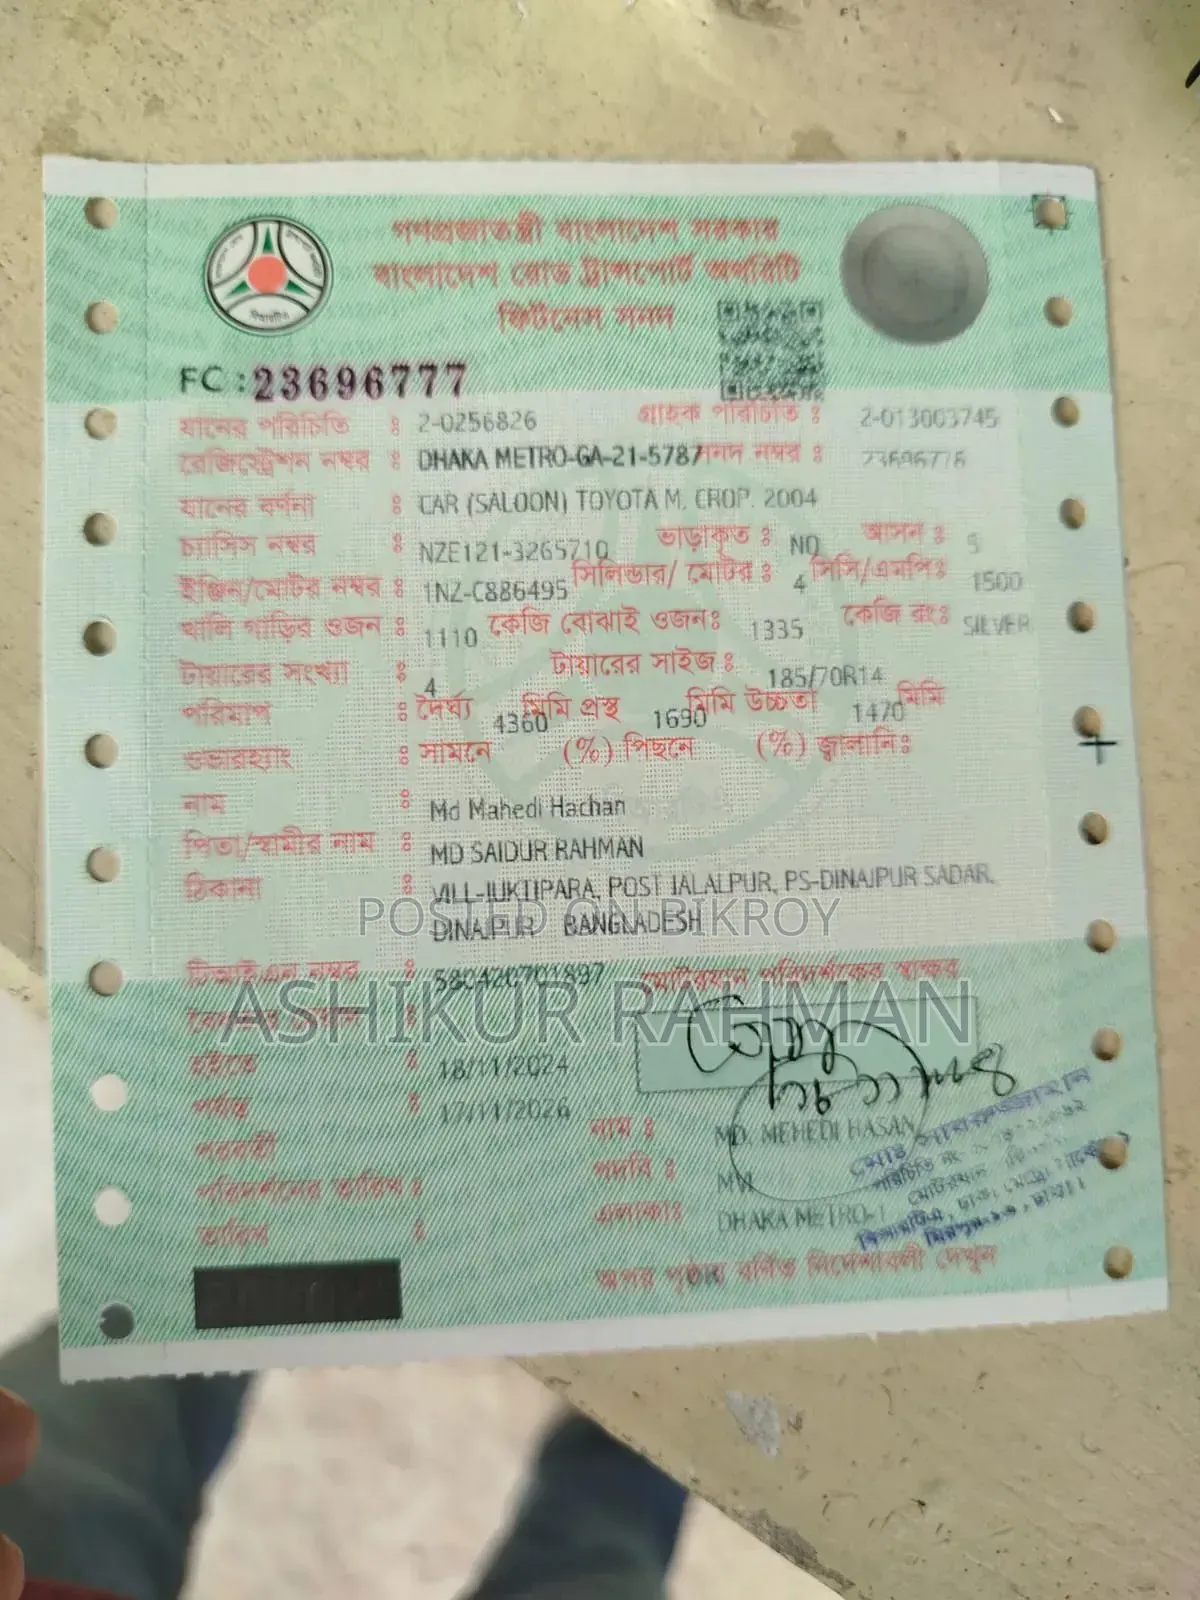 গণপ্রজাতন্ত্রী বাংলাদেশ সরকার
বাংলাদেশ রোড ট্রান্সপোর্ট অথরিটি
ফিটনেস সনদ
FC : 23696777
যানের পরিচিতি : 2-0256826 গ্রাহক পরিচিতি : 2-013003745
রেজিস্ট্রেশন নম্বর : DHAKA METRO-GA-21-5787 সনদ নম্বর : 23696776
যানের বর্ণনা : CAR (SALOON) TOYOTA M. CROP. 2004
চ্যাসিস নম্বর : NZE121-3265710 ভাড়াকৃত : NO আসন : 5
ইঞ্জিন/মোটর নম্বর : 1NZ-C886495 সিলিন্ডার/ মোটর : 4 সিসি/এমপি: 1500
খালি গাড়ির ওজন : 1110 কেজি বোঝাই ওজন: 1335 কেজি রং: SILVER
টায়ারের সংখ্যা : 4 টায়ারের সাইজ : 185/70R14
পরিমাপ : দৈর্ঘ্য 4360 মিমি প্রস্থ 1690 মিমি উচ্চতা 1470 মিমি
ওভারহ্যাং : সামনে (%) পিছনে (%) জ্বালানি:
নাম : Md Mahedi Hachan
পিতা/স্বামীর নাম : MD SAIDUR RAHMAN
ঠিকানা : VILL-JUKTIPARA, POST JALALPUR, PS-DINAJPUR SADAR,
DINAJPUR BANGLADESH
POSTED ON BIKROY
টিআইএন নম্বর : 580420701897 মোটরযান পরিদর্শকের স্বাক্ষর
ASHIKUR RAHMAN
হইতে : 18/11/2024
পর্যন্ত : 17/11/2026
নাম : MD. MEHEDI HASAN
পরবর্তী
পদবি : MVI
পরিদর্শনের তারিখ :
এলাকা: DHAKA METRO-1
তারিখ :
অপর পৃষ্ঠায় বর্ণিত নির্দেশাবলী দেখুন